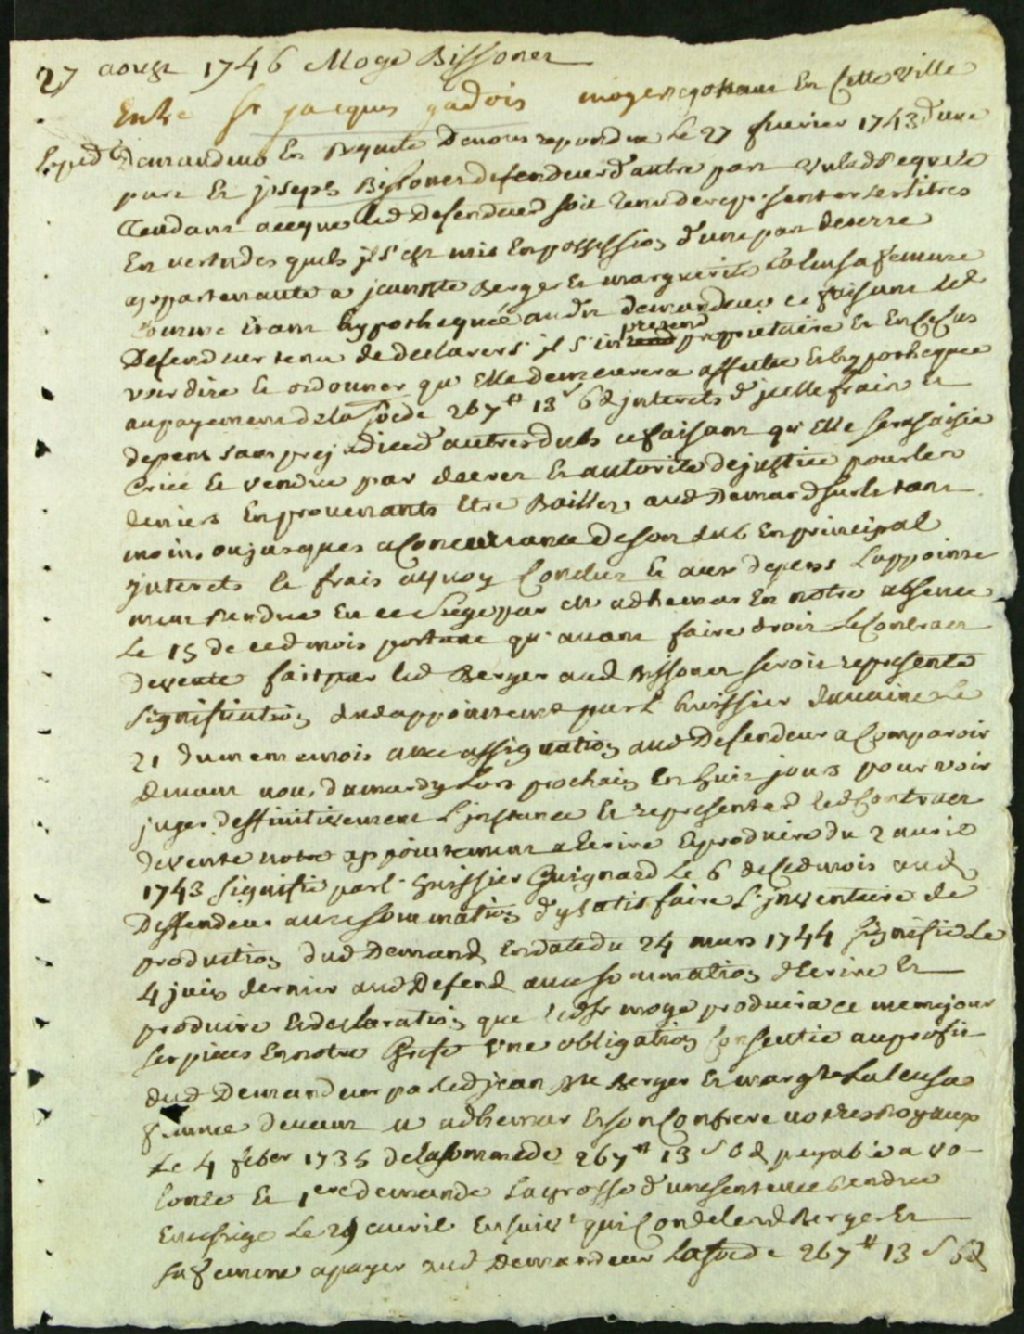 27 aoust 1746 Moge Bissonet
Entre Sr jacques gadois moge negotiant En Cette Ville
demandeur En Requete de nous repondue Le 27 fevrier 1743 d'une
part Et joseph Bissonet defendeur d'autre part Ladte Requete
Tendant a ceque led Defendeur soit Tenu de representer ses titres
En vertu des quels jl s'est mis En possession d'une part de terre
appartenante a jean Bte Berger Et marguerite Laleu sa femme
Comme Etant hypothequée aud demandeur ce faisant led
Defendeur tenu de declarer s'jl s'en pretend proprietaire Et En ce Cas
voir dire Et ordonner qu'Elle demeurera affectée Et hypothequée
au payement de la so de 267# 13 s 6 d jnterets d'jcelle frais Et
depens sans prejudice d'autres dubs ce faisant qu'Elle sera saisie
Criée Et vendue par decret Et autorité de justice pour les
deniers En provenants Etre Baillez aud Demand sur Et tant
moins ou jusques a Concurrance de son dub En principal
jnterets Et frais a quoy Conclut Et aux depens L'appointe
ment Rendu En ce siege par Me adhemar En notre absence
Le 15 de ced mois portant qu'avant faire droit Le Contract
de vente fait par led Berger aud Bissonet seroit representé
signification dud appointement par L'huissier Le
21 du meme mois avec assignation aud Defendeur a Comparoir
devant nous du mardy Lors prochain En huit jours pour voir
juger deffinitivement L'jnstance Et representer led Contract
de vente notre appointement a Ecrire Et produire du 2 avril
1743 signifié par L'huissier Guignard Le 6 de Ced mois aud
Deffendeur avec sommation d'y satisfaire L'jnventaire de
production dud Demand En date du 24 mars 1744 signifié Le
4 juin dernier aud Defend avec sommation d'Ecrire Et
produire Et declaration que led Sr moge produira ce meme jour
ses pieces En notre Greffe Une obligation Consentie au profit
dud Demandeur par led jean Bte Berger Et margte Laleu sa
femme devant Me adhemar Et son Confrere notres Royaux
Le 4 feber 1735 de la somme de 267# 13 s 6 d payable a vo-
lonté Et 1ere demande La grosse d'une sentence Rendue
En ce siege Le 29 avril Ensuivt qui Conde led Berger Et
sa femme a payer aud Demandeur La so de 267# 13 s 6 d